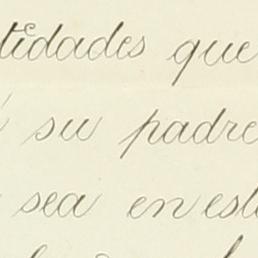 tidades que
su padre
sea en est